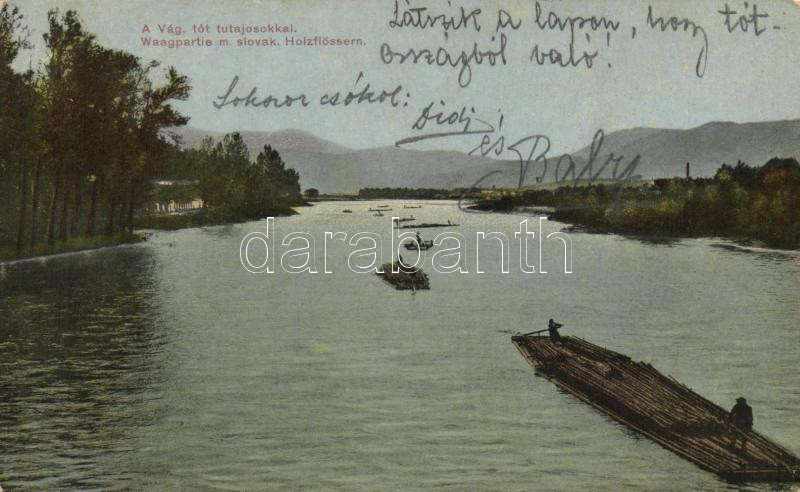 A Vág, tót tutajosokkal.
Waagpartie m. slovak. Holzflössern.
Látszik a lapon, hogy tót-
országból való!
Sokszor csókol:
Didi
és Baby
darabanth